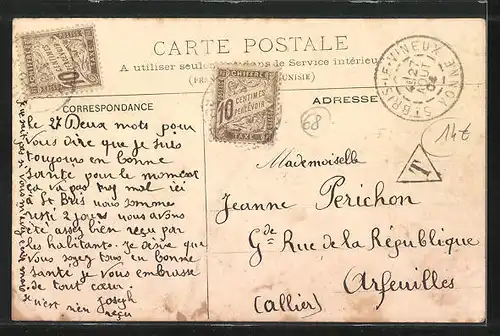 CARTE POSTALE
A utiliser seulement dans de Service intérieur
(FRANCE TUNISIE)
CORRESPONDANCE
ADRESSE
CHIFFRE
10
CENTIMES
A PERCEVOIR
TAXE
10
ST BRIS-LE-VINEUX
27
AOUT
04
YONNE
68
14€
T
le 27 Deux mots pour
vous dire que je suis
toujours en bonne
santé pour le moment
ça va pas trop mal ici
à St Bris nous somme
resté 2 jours nous avons
été assez bien reçu par
les habitants. je désire que
vous soyez tous en bonne
santé je vous embrasse
de tout cœur.
Joseph
n'est rien reçu
Mademoiselle
Jeanne Perichon
Gde Rue de la République
Arfeuilles
(Allier)